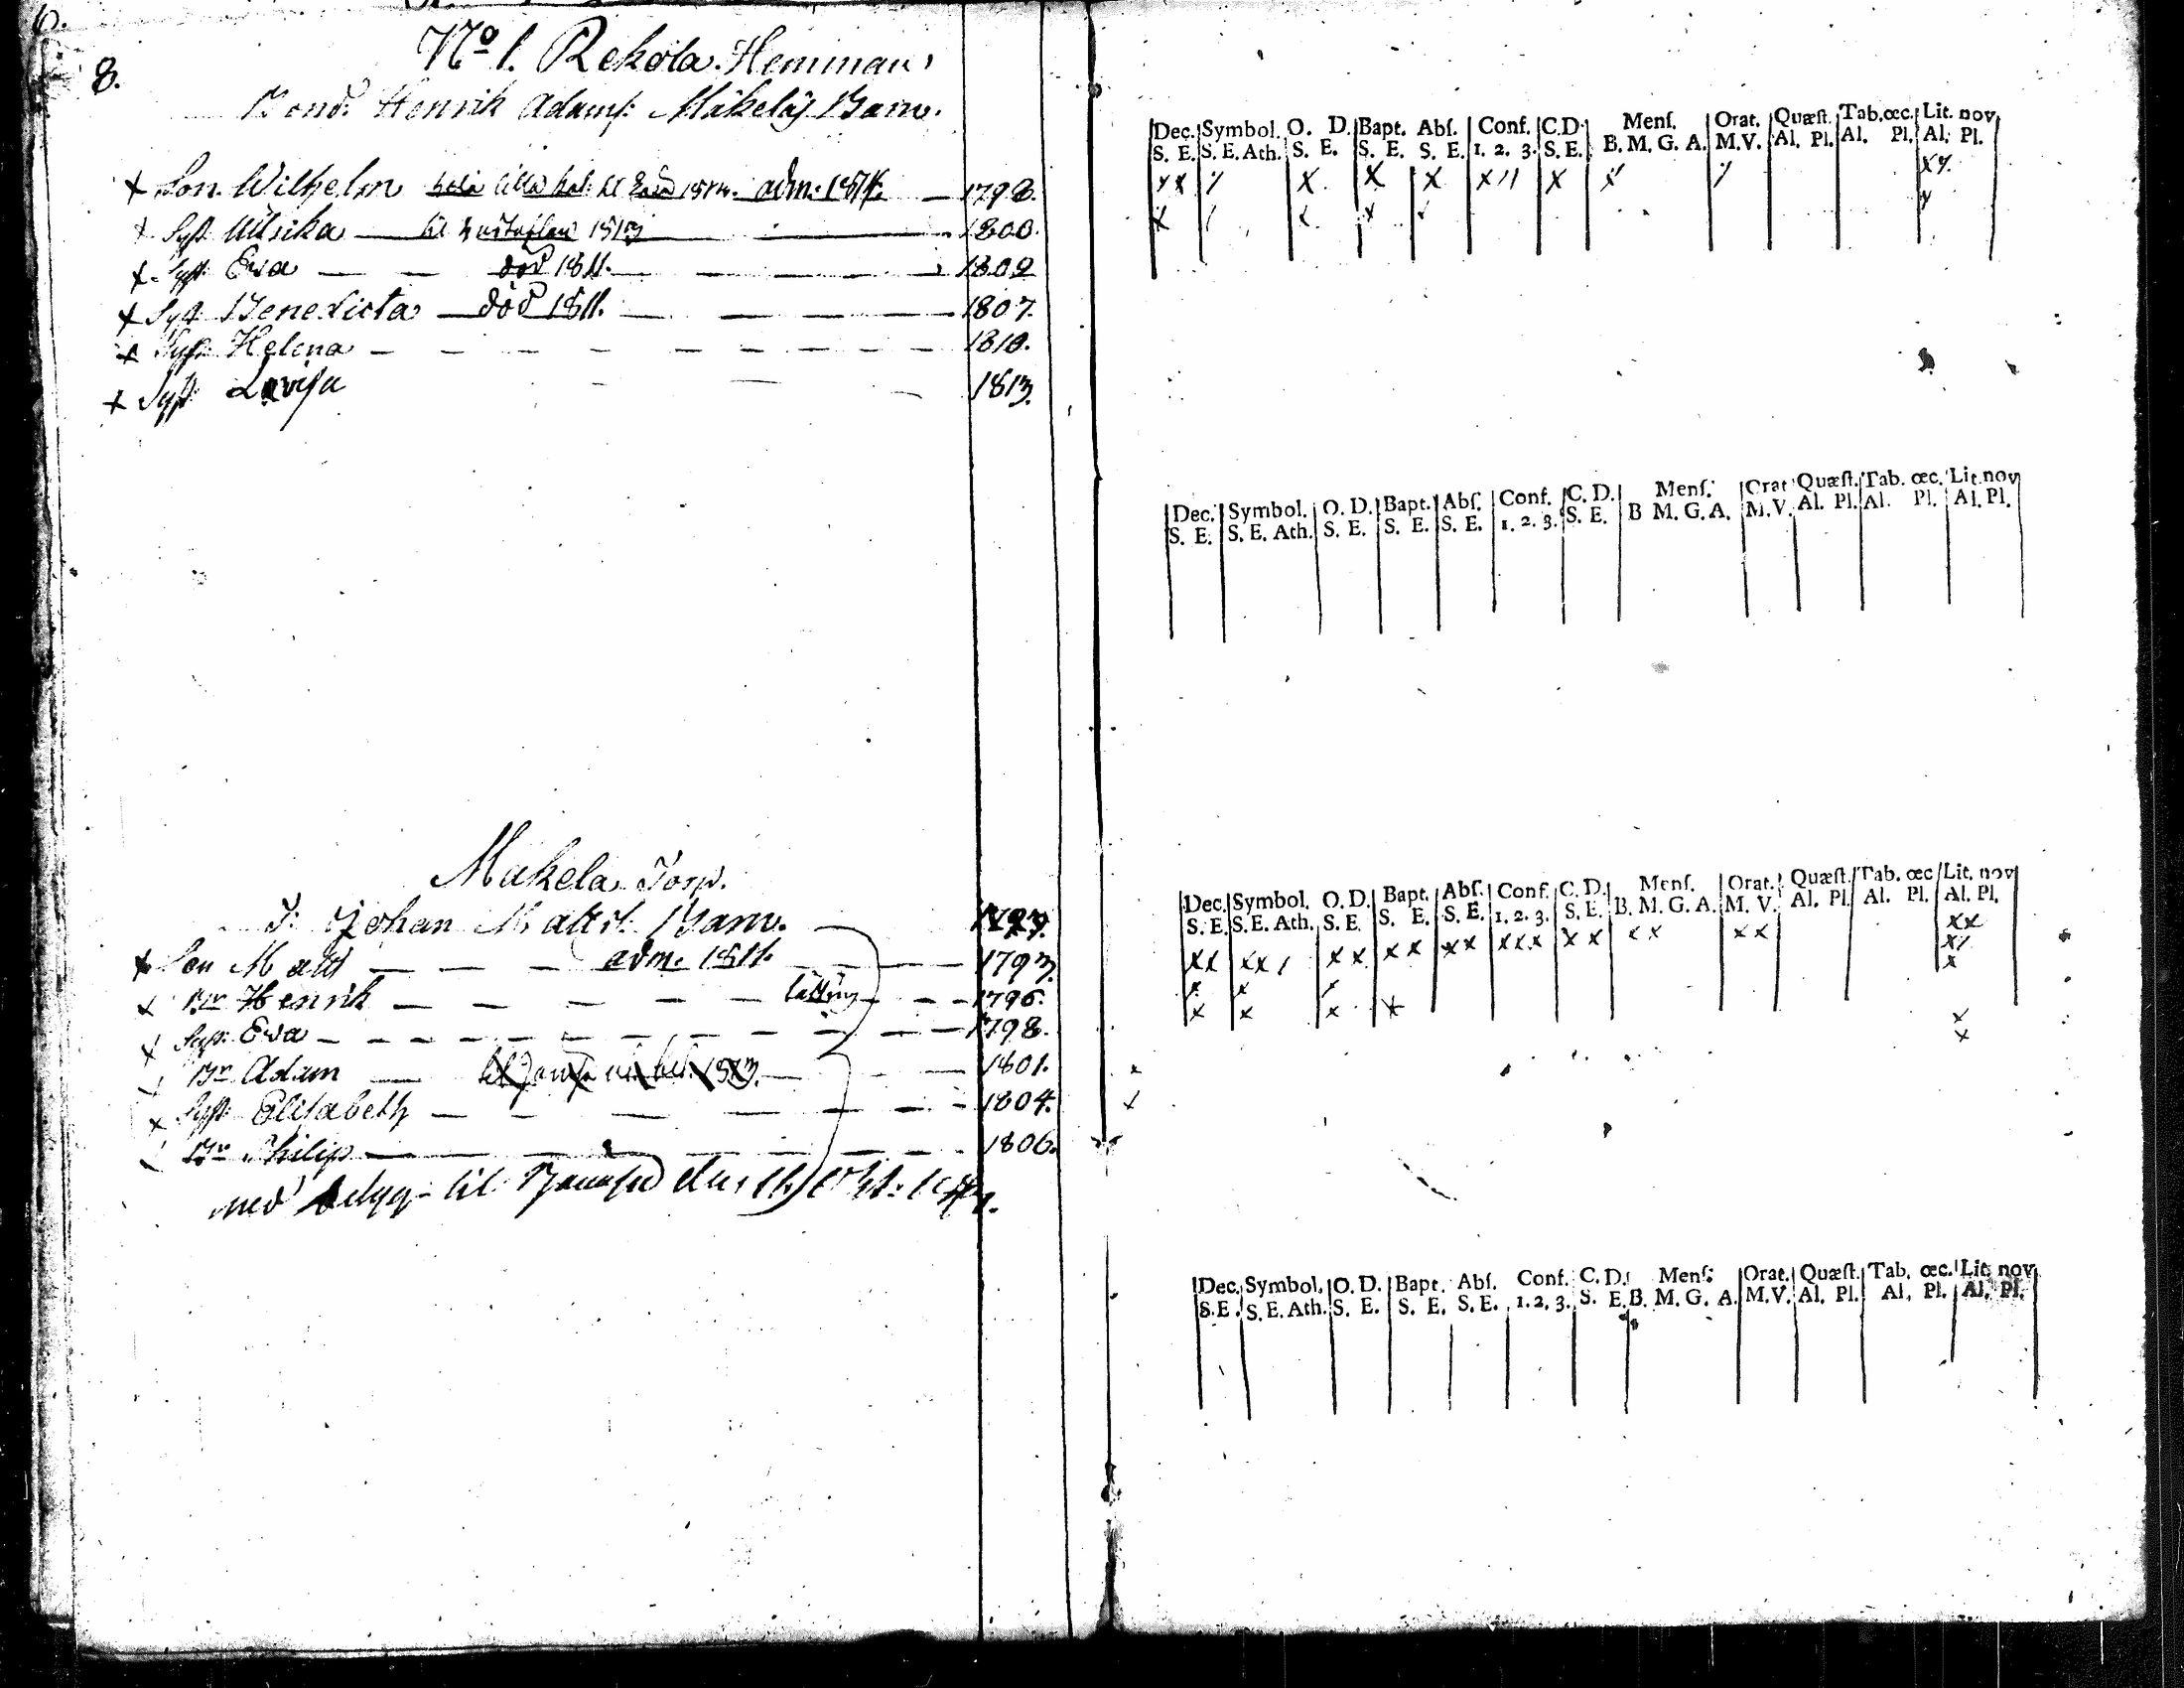 8.
No 1. Rekola Hemman
Bond. Henrik Adamss: Mäkeläs Barn.
+ Son Wilhelm adm: 1814. 1798.
+ Syst. Ulrika til 1813 1800.
+ Syst. Ewa död 1811. 1802
+ Syst Benedicta död 1811. 1807.
+ Syst Helena 1810.
+ Syst Lovisa 1813.
Makela Torp.
T: Johan Matts: Barn.
+ Son Matts adm. 1811. 1793.
x Br Henrik 1796.
x Syst: Ewa 1798.
Br Adam 1801.
x Syst Elisabeth 1804.
Br Philip 1806.
med til
Dec. Symbol. O. D. Bapt. Abſ. Conf. C.D. Menſ. Orat. Quæſt. Tab.œc. Lit. nov
S. E. S. E. Ath. S. E. S. E. S. E. 1. 2. 3. S. E. B. M. G. A. M.V. Al. Pl. Al. Pl. Al. Pl.
Dec. Symbol. O. D. Bapt. Abſ. Conf. C. D. Menſ. Orat Quæſt. Tab. œc. Lit. nov
S. E. S. E. Ath. S. E. S. E. S. E. 1. 2. 3. S. E. B M. G. A. M.V. Al. Pl. Al. Pl. Al. Pl.
Dec. Symbol. O. D. Bapt. Abſ. Conf. C. D. Menſ. Orat. Quæſt. Tab. œc Lit. nov
S. E. S. E. Ath. S. E. S. E. S. E. 1. 2. 3. S. E. B. M. G. A. M. V. Al. Pl. Al. Pl. Al. Pl.
Dec. Symbol. O. D. Bapt. Abſ. Conf. C. D. Menſ: Orat. Quæſt. Tab. œc. Lit. nov
S. E. S. E. Ath. S. E. S. E. S. E. 1. 2. 3. S. E. B. M. G. A. M.V. Al. Pl. Al. Pl. Al. Pl.